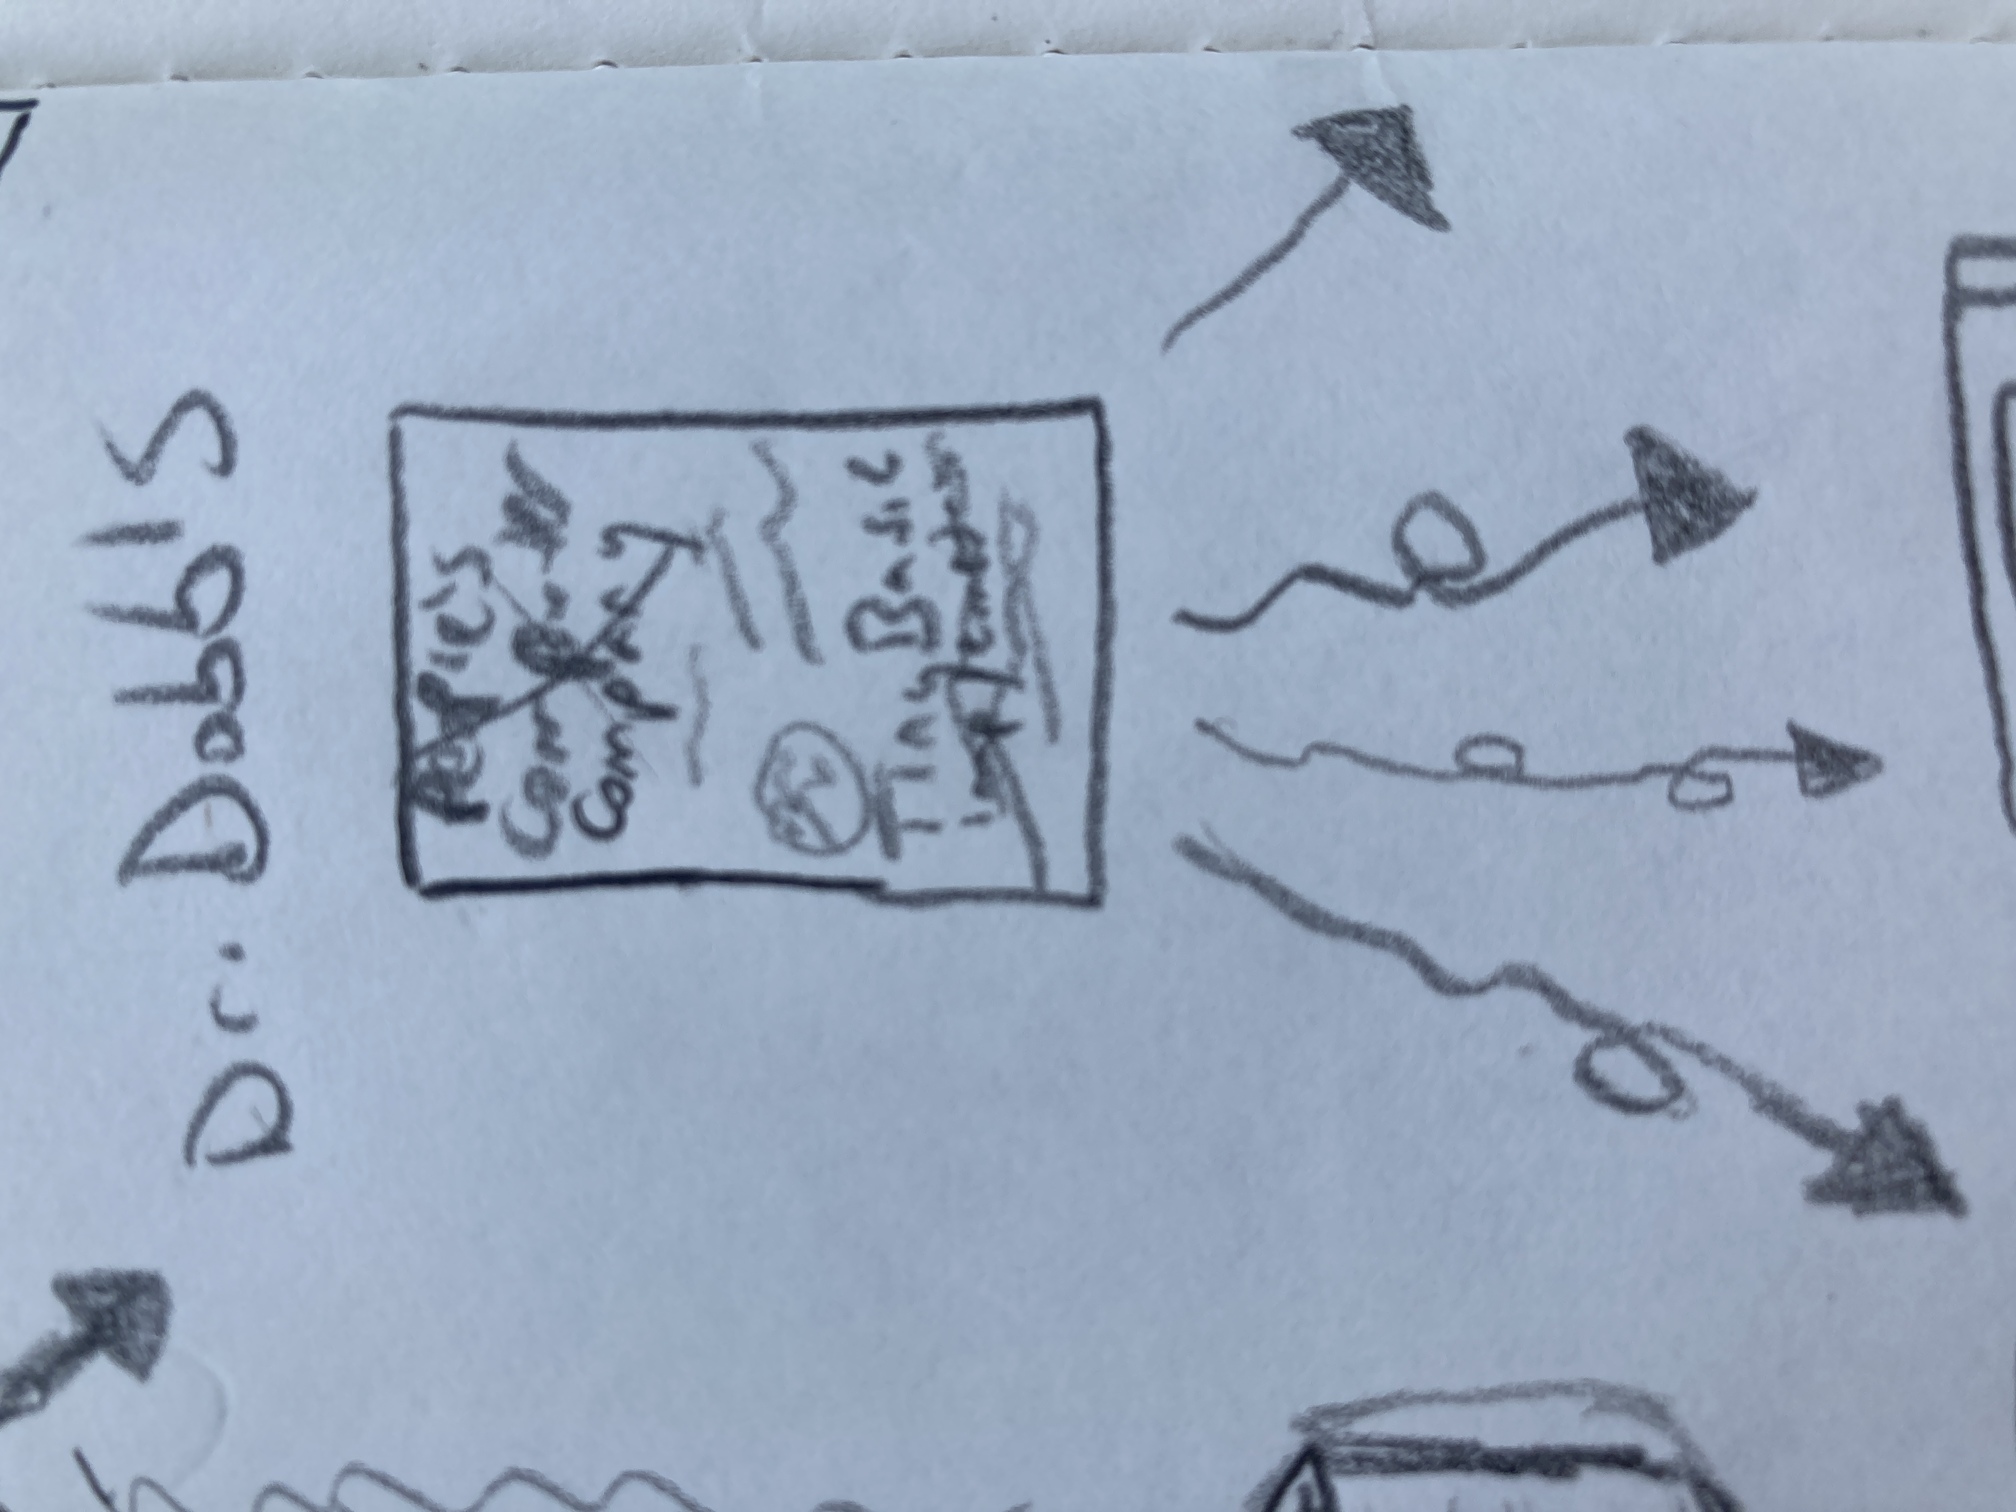 Dr. Dobb's
People's
Computer
Company
Tiny Basic
implementation